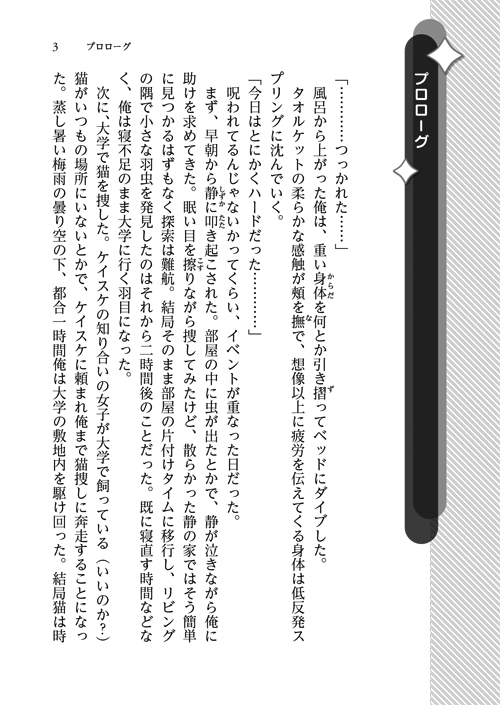 3　プロローグ
プロローグ
「…………つっかれた……」
風呂から上がった俺は、重い身体を何とか引き摺ってベッドにダイブした。
タオルケットの柔らかな感触が頬を撫で、想像以上に疲労を伝えてくる身体は低反発ス
プリングに沈んでいく。
「今日はとにかくハードだった…………」
呪われてるんじゃないかってくらい、イベントが重なった日だった。
まず、早朝から静に叩き起こされた。部屋の中に虫が出たとかで、静が泣きながら俺に
助けを求めてきた。眠い目を擦りながら捜してみたけど、散らかった静の家ではそう簡単
に見つかるはずもなく探索は難航。結局そのまま部屋の片付けタイムに移行し、リビング
の隅で小さな羽虫を発見したのはそれから二時間後のことだった。既に寝直す時間などな
く、俺は寝不足のまま大学に行く羽目になった。
次に、大学で猫を捜した。ケイスケの知り合いの女子が大学で飼っている（いいのか？）
猫がいつもの場所にいないとかで、ケイスケに頼まれ俺まで猫捜しに奔走することになっ
た。蒸し暑い梅雨の曇り空の下、都合一時間俺は大学の敷地内を駆け回った。結局猫は時